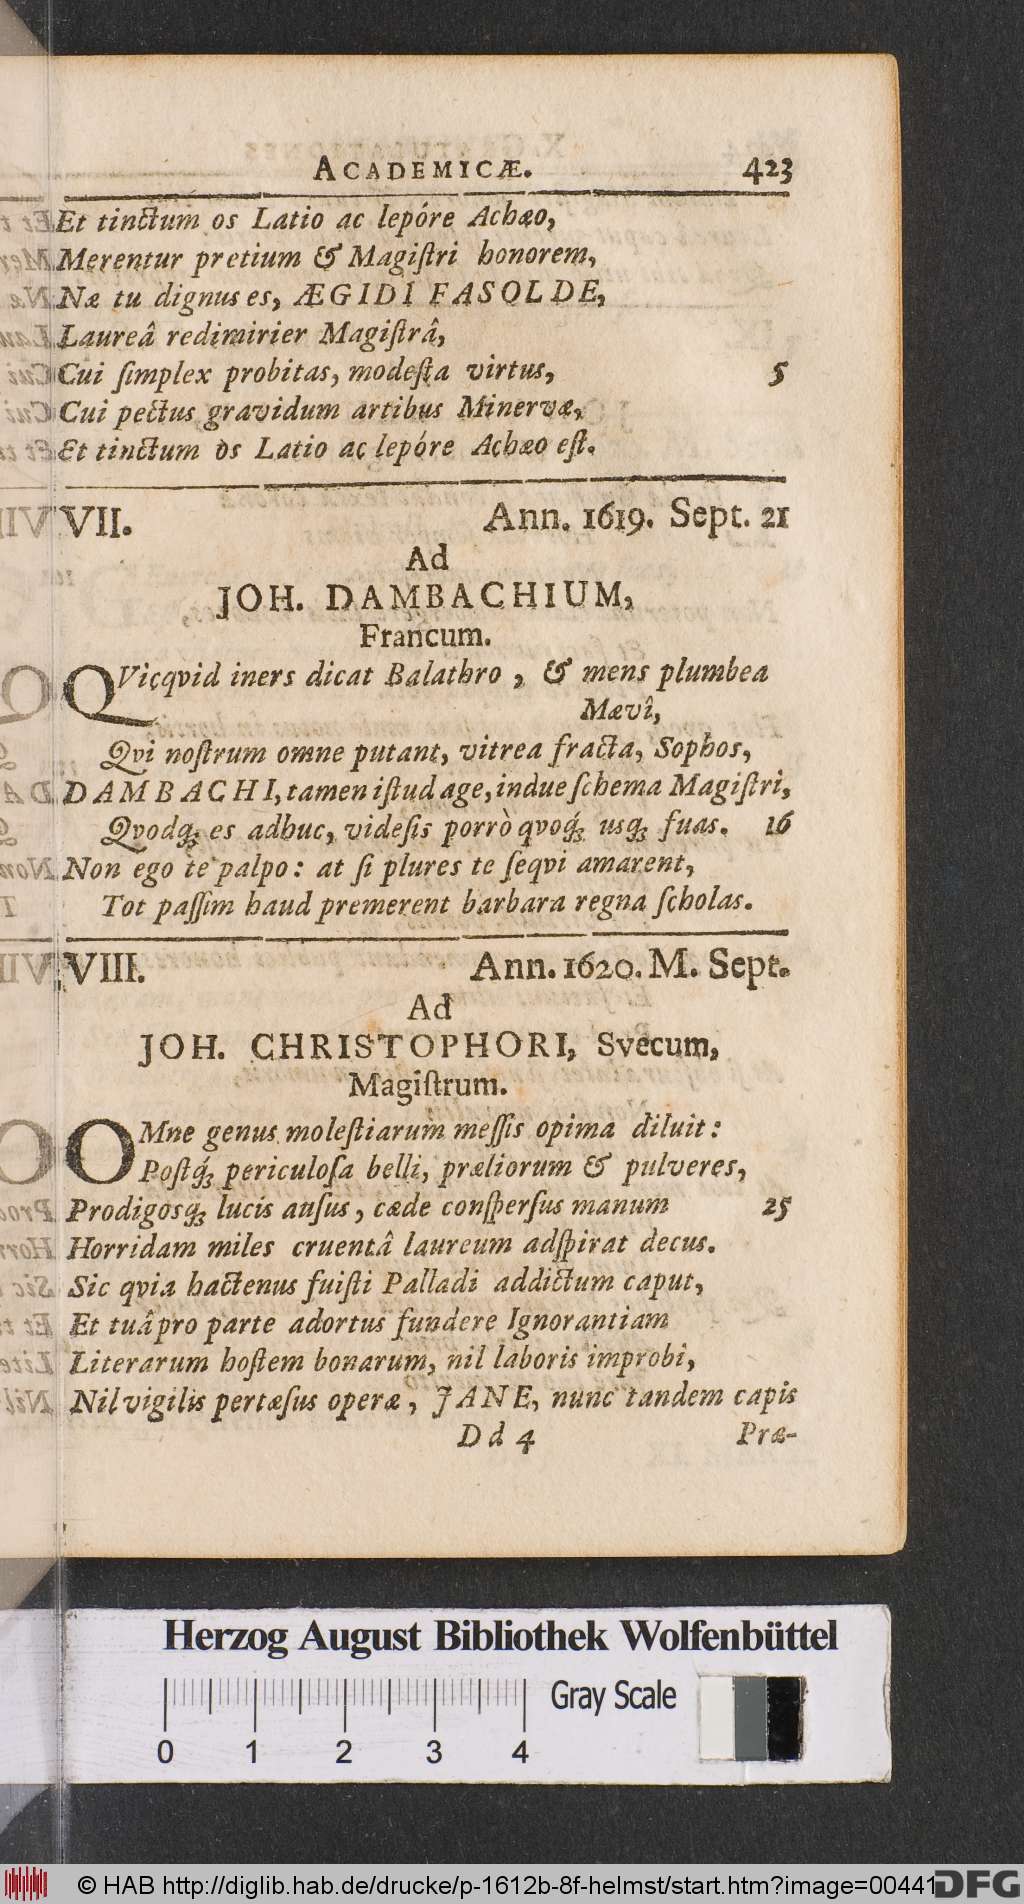 ACADEMICÆ. 423
Et tinctum os Latio ac lepóre Achæo,
Merentur pretium & Magiſtri honorem,
Næ tu dignus es, ÆGIDI FASOLDE,
Laureâ redimirier Magiſtrâ,
Cui ſimplex probitas, modeſta virtus, 5
Cui pectus gravidum artibus Minervæ,
Et tinctum os Latio ac lepóre Achæo eſt.
VII. Ann. 1619. Sept. 21
Ad
JOH. DAMBACHIUM,
Francum.
QVicqvid iners dicat Balathro, & mens plumbea
Mævî,
Qvi noſtrum omne putant, vitrea fracta, Sophos,
DAMBACHI, tamen iſtud age, indue ſchema Magiſtri,
Qvodq́; es adhuc, videſis porrò qvoq́; usq; ſuas. 16
Non ego te palpo: at ſi plures te ſeqvi amarent,
Tot paſſim haud premerent barbara regna ſcholas.
VIII. Ann. 1620. M. Sept.
Ad
JOH. CHRISTOPHORI, Svecum,
Magiſtrum.
OMne genus moleſtiarum meſſis opima diluit:
Poſtq́; periculoſa belli, præliorum & pulveres,
Prodigosq; lucis auſus, cæde conſperſus manum 25
Horridam miles cruentâ laureum adſpirat decus.
Sic qvia hactenus fuiſti Palladi addictum caput,
Et tuâ pro parte adortus fundere Ignorantiam
Literarum hoſtem bonarum, nil laboris improbi,
Nil vigilis pertæſus operæ, JANE, nunc tandem capis
Dd 4 Præ-
Herzog August Bibliothek Wolfenbüttel
Gray Scale
0 1 2 3 4
© HAB http://diglib.hab.de/drucke/p-1612b-8f-helmst/start.htm?image=00441
DFG